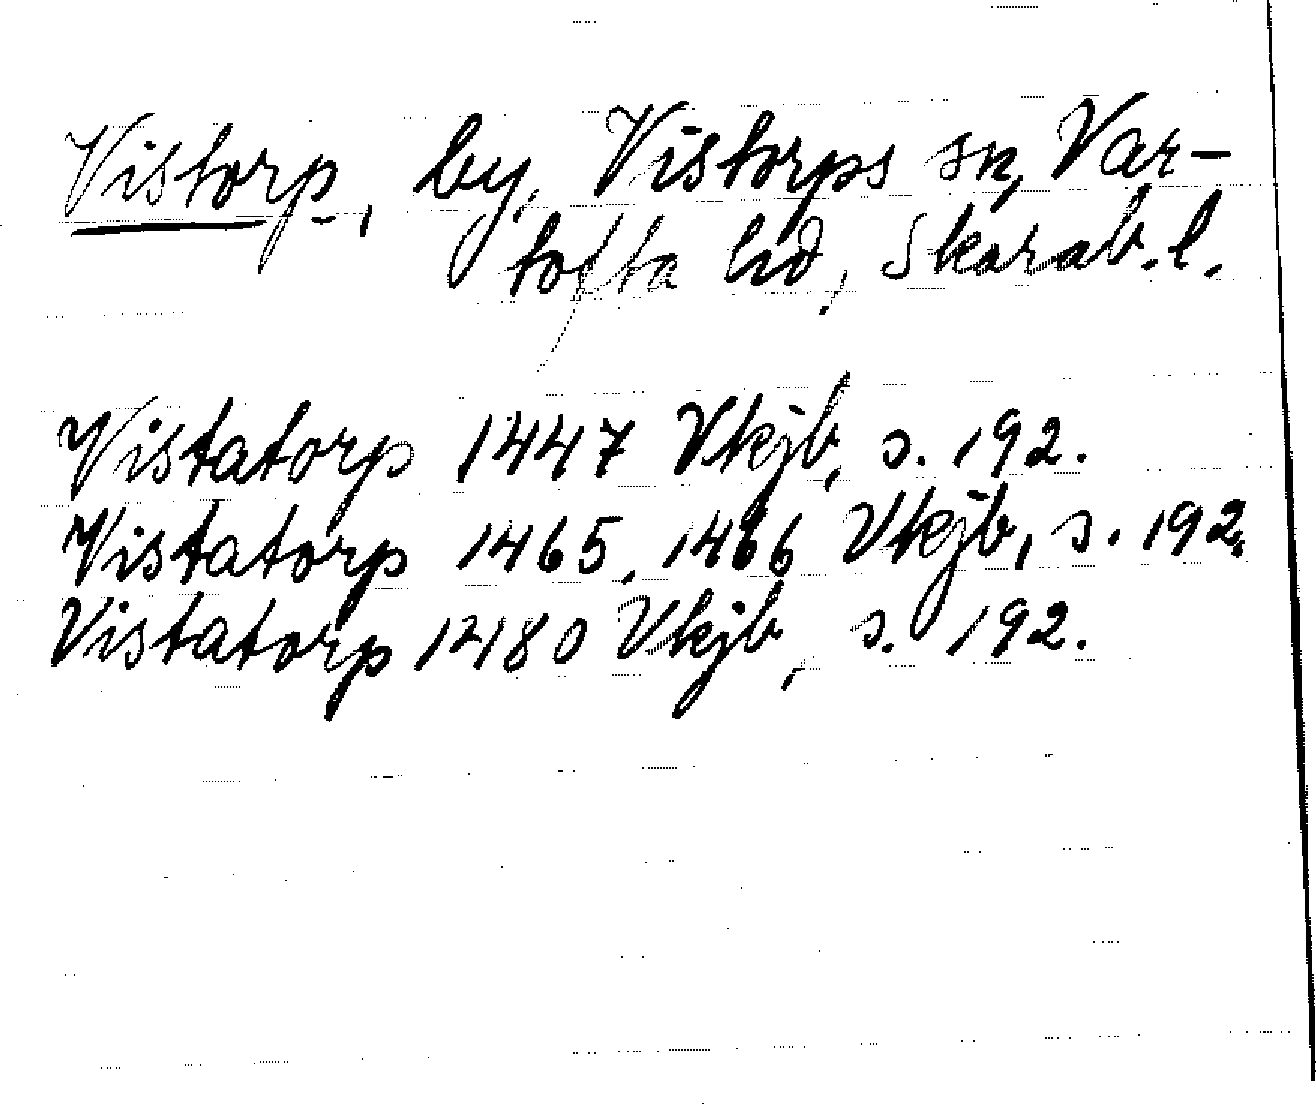 Vistorp, by, Vistorps sn, Var-
tofta hd, Skarab.l.
Vistatorp 1447 Vkjb, s. 192.
Vistatorp 1465, 1466 Vkjb, s. 192.
Vistatorp 1480 Vkjb, s. 192.